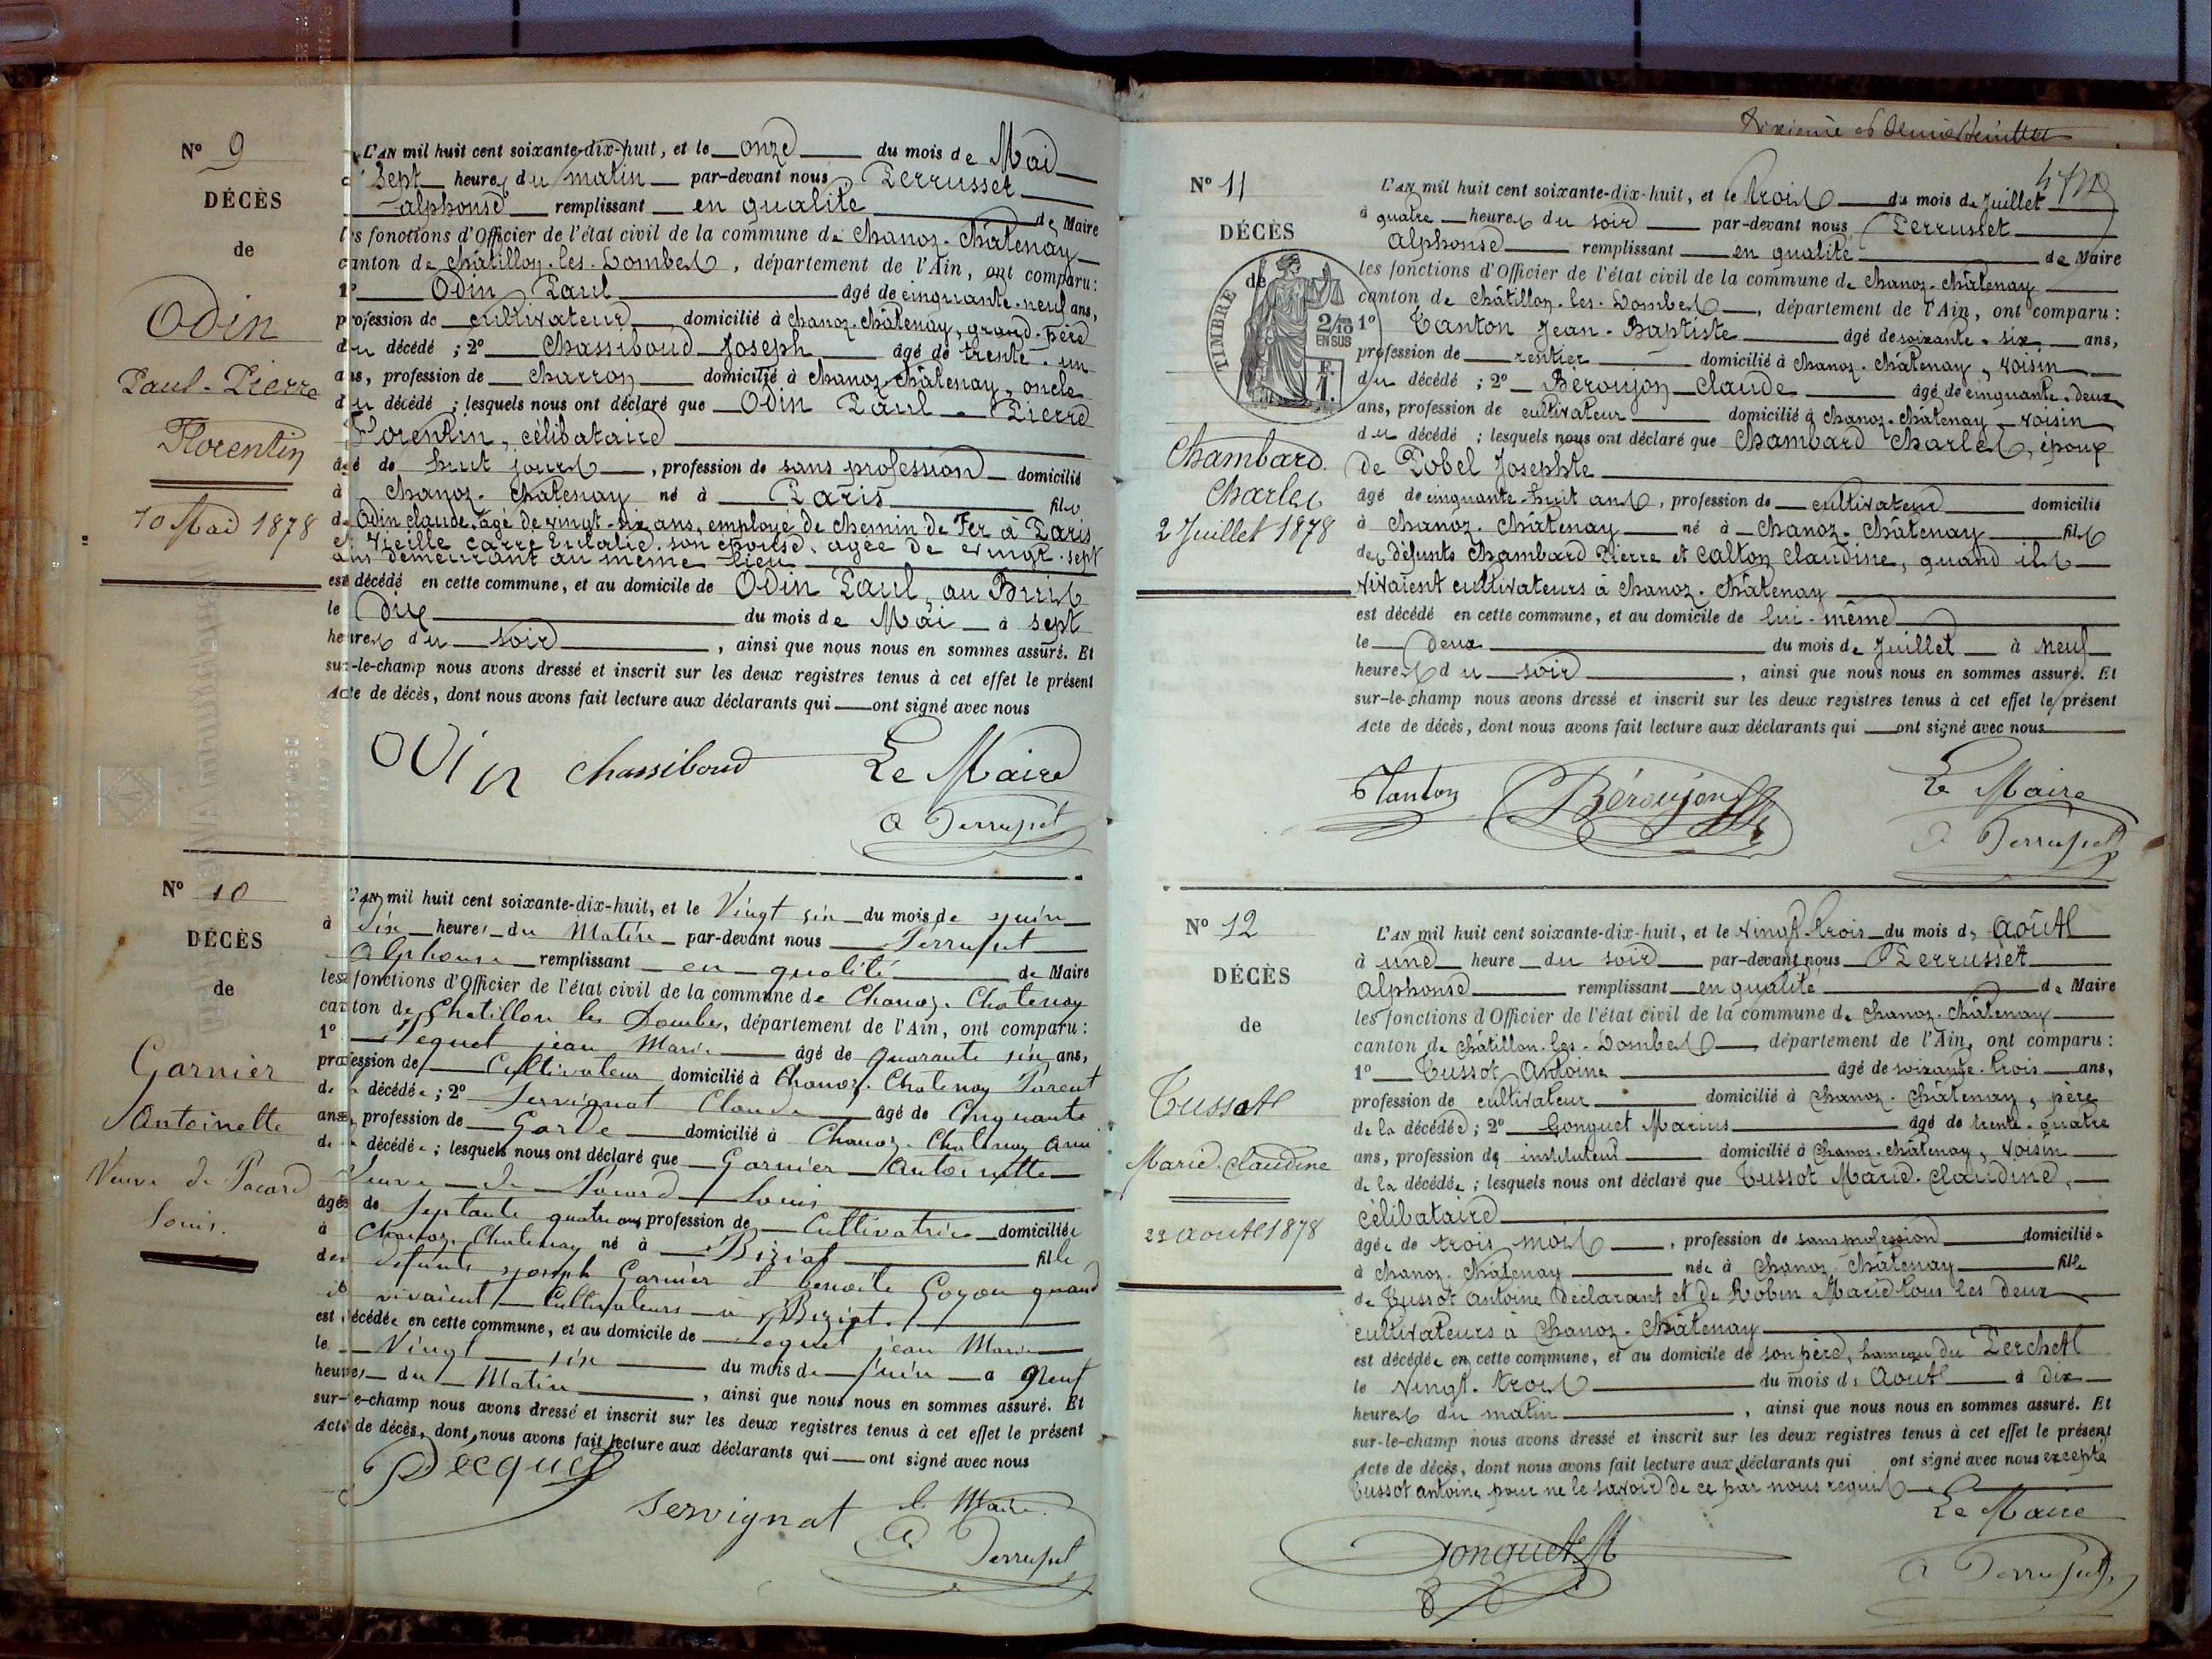 N° 9
DÉCÈS
de
Odin
Paul-Pierre
Florentin
10 Mai 1878
L'AN mil huit cent soixante-dix-huit, et le onze du mois de Mai
à sept heures du matin par-devant nous Perrusset
alphonse remplissant en qualité de Maire
les fonctions d'Officier de l'état civil de la commune de Chanoz-Châtenay
canton de Châtillon-les-Dombes, département de l'Ain, ont comparu :
1° Odin Paul âgé de cinquante-neuf ans,
profession de cultivateur domicilié à Chanoz-Châtenay, grand-père
du décédé ; 2° Chassiboud Joseph âgé de trente-un
ans, profession de charron domicilié à Chanoz-Châtenay, oncle
du décédé ; lesquels nous ont déclaré que Odin Paul-Pierre
Florentin, célibataire
âgé de huit jours, profession de sans profession domicilié
à Chanoz-Châtenay né à Paris fils
de Odin claude, âgé de vingt-six ans, employé de chemin de Fer à Paris
et Vieille Carre Eulalie son épouse, agée de vingt-sept
ans demeurant au même lieu
est décédé en cette commune, et au domicile de Odin Paul, au
le Dix du mois de Mai à sept
heures du soir, ainsi que nous nous en sommes assuré. Et
sur-le-champ nous avons dressé et inscrit sur les deux registres tenus à cet effet le présent
Acte de décès, dont nous avons fait lecture aux déclarants qui ont signé avec nous
Odin Chassiboud Le Maire
A Perrusset
N° 10
DÉCÈS
de
Garnier
Antoinette
Veuve de Pacard
Louis.
L'AN mil huit cent soixante-dix-huit, et le Vingt six du mois de juin
à dix heures du Matin par-devant nous Perrusset
Alphonse remplissant en qualité de Maire
les fonctions d'Officier de l'état civil de la commune de Chanoz-Chatenay
canton de Chatillon les Dombes, département de l'Ain, ont comparu :
1° Pequet jean Marie âgé de quarante six ans,
profession de Cultivateur domicilié à Chanoz-Chatenay Parent
de la décédée ; 2° Servignat Claude âgé de Cinquante
ans, profession de Garde domicilié à Chanoz-Chatenay ami
de la décédée ; lesquels nous ont déclaré que Garnier Antoinette
Veuve de Pacard Louis
âgée de septante quatre ans profession de Cultivatrice domiciliée
à Chanoz-Chatenay né à Biziat fille
des défunts joseph Garnier et benoite Goyon quand
ils vivaient Cultivateurs à Biziat.
est décédée en cette commune, et au domicile de Pequet jean Marie
le Vingt six du mois de juin à Neuf
heures du Matin, ainsi que nous nous en sommes assuré. Et
sur-le-champ nous avons dressé et inscrit sur les deux registres tenus à cet effet le présent
Acte de décès, dont nous avons fait lecture aux déclarants qui ont signé avec nous
Pecquet
Servignat le Maire
A Perrusset
N° 11
DÉCÈS
de
TIMBRE
2/10
EN SUS
F.
1.
Chambard
Charles
2 Juillet 1878
L'AN mil huit cent soixante-dix-huit, et le trois du mois de juillet
à quatre heures du soir par-devant nous Perrusset
Alphonse remplissant en qualité de Maire
les fonctions d'Officier de l'état civil de la commune de Chanoz-Châtenay
canton de Châtillon-les-Dombes, département de l'Ain, ont comparu :
1° Tanton Jean-Baptiste âgé de soixante-six ans,
profession de rentier domicilié à Chanoz-Châtenay, voisin
du décédé ; 2° Béroujon Claude âgé de cinquante-deux
ans, profession de cultivateur domicilié à Chanoz-Châtenay voisin
du décédé ; lesquels nous ont déclaré que Chambard Charles, époux
de Pobel Josephte
âgé de cinquante-huit ans, profession de cultivateur domicilié
à Chanoz-Châtenay né à Chanoz-Châtenay fils
des défunts Chambard Pierre et Calton Claudine, quand ils
vivaient cultivateurs à Chanoz-Châtenay
est décédé en cette commune, et au domicile de lui-même
le deux du mois de juillet à neuf
heures du soir, ainsi que nous nous en sommes assuré. Et
sur-le-champ nous avons dressé et inscrit sur les deux registres tenus à cet effet le présent
Acte de décès, dont nous avons fait lecture aux déclarants qui ont signé avec nous
Tanton Béroujon Le Maire
A Perrusset
N° 12
DÉCÈS
de
Tussot
Marie-Claudine
23 août 1878
L'AN mil huit cent soixante-dix-huit, et le vingt-trois du mois d'Août
à une heure du soir par-devant nous Perrusset
Alphonse remplissant en qualité de Maire
les fonctions d'Officier de l'état civil de la commune de Chanoz-Châtenay
canton de Châtillon-les-Dombes département de l'Ain, ont comparu :
1° Tussot Antoine âgé de soixante-trois ans,
profession de cultivateur domicilié à Chanoz-Châtenay, père
de la décédée ; 2° Gonguet Marius âgé de trente-quatre
ans, profession de instituteur domicilié à Chanoz-Châtenay, voisin
de la décédée ; lesquels nous ont déclaré que Tussot Marie-Claudine,
célibataire
âgée de trois mois, profession de sans profession domiciliée
à Chanoz-Châtenay née à Chanoz-Châtenay fille
de Tussot Antoine Déclarant et de Robin Marie tous les deux
cultivateurs à Chanoz-Châtenay
est décédée en cette commune, et au domicile de son père, hameau du Perchet
le vingt-trois du mois d'Août à Dix
heures du matin, ainsi que nous nous en sommes assuré. Et
sur-le-champ nous avons dressé et inscrit sur les deux registres tenus à cet effet le présent
Acte de décès, dont nous avons fait lecture aux déclarants qui ont signé avec nous excepté
Tussot antoine pour ne le savoir de ce par nous requis
Le Maire
Gonguet M
A Perrusset